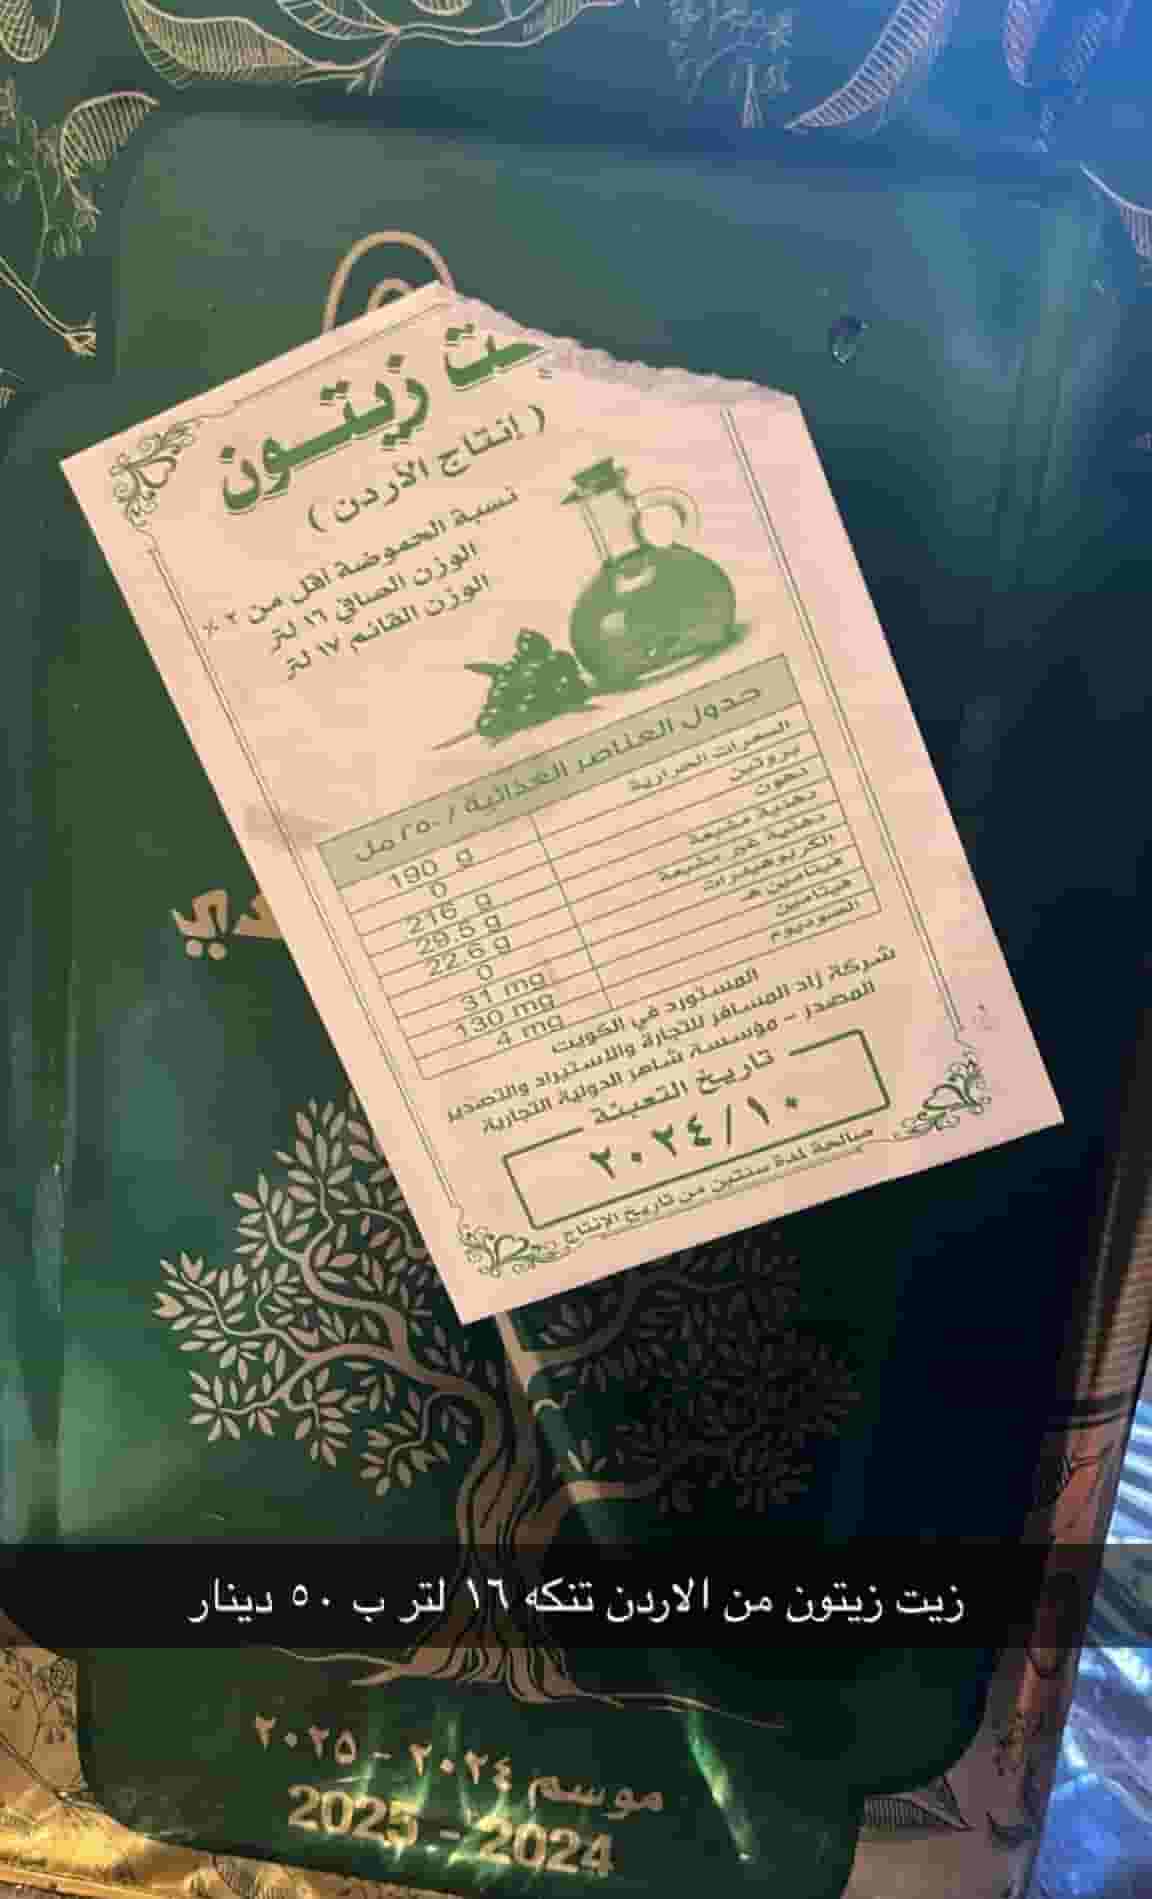 زيت زيتون
( إنتاج الأردن )
نسبة الحموضة اقل من ٢ %
الوزن الصافي ١٦ لتر
الوزن القائم ١٧ لتر
جدول العناصر الغذائية / ٢٥٠ مل
السعرات الحرارية 190 g
بروتين 0
دهون 216 g
دهنية مشبعة 29.5 g
دهنية غير مشبعة 22.6 g
الكربوهيدرات 0
فيتامين هـ 31 mg
فيتامين 130 mg
السوديوم 4 mg
المستورد في الكويت
شركة زاد المسافر للتجارة والاستيراد والتصدير
المصدر - مؤسسة شاهر الدولية التجارية
تاريخ التعبئة
٢٠٢٤/١٠
صالحة لمدة سنتين من تاريخ الإنتاج
زيت زيتون من الاردن تنكه ١٦ لتر ب ٥٠ دينار
موسم ٢٠٢٤ - ٢٠٢٥
2025 - 2024